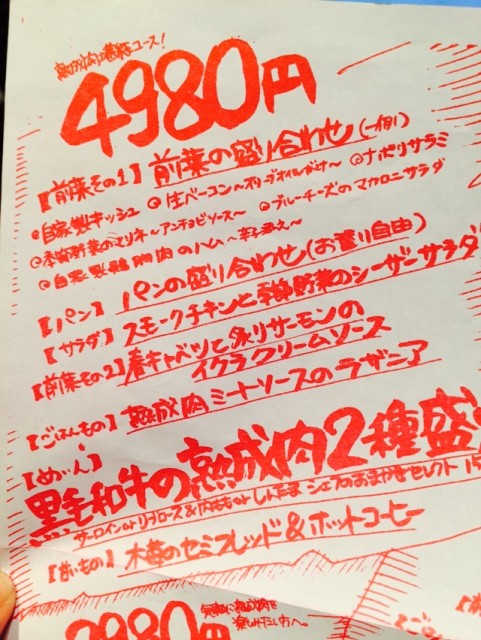 熟成肉堪能コース!
4980円
【前菜その1】前菜の盛り合わせ(一例)
◎自家製キッシュ ◎生ベーコン〜オリーブオイルがけ〜 ◎ナポリサラミ
◎季節野菜のマリネ〜アンチョビソース〜 ◎ブルーチーズのマカロニサラダ
◎自家製鶏胸肉のハム〜辛子添え〜
【パン】パンの盛り合わせ(お替り自由)
【サラダ】スモークチキンと季節野菜のシーザーサラダ
【前菜その2】春キャベツと炙りサーモンの
イクラクリームソース
【ごはんもの】熟成肉ミートソースのラザニア
【めいん】
黒毛和牛の熟成肉2種盛
サーロインorリブロース&内ももorしんたま シェフのおまかせセレクト
【甘いもの】木苺のセミフレッド&ホットコーヒー
2980円
気軽に熟成肉を
楽しみたい方へ。
【ごは